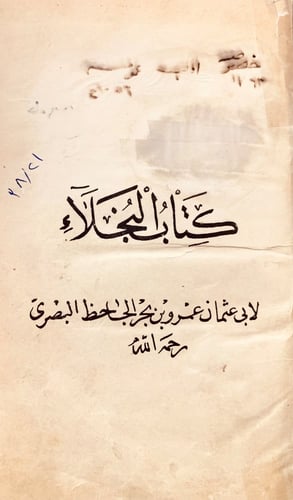 ٢٨/٢١
كِتَابُ الْبُخَلَآءِ
لابى عثمان عمرو بن بحر الجاحظ البصرى
رحمه الله